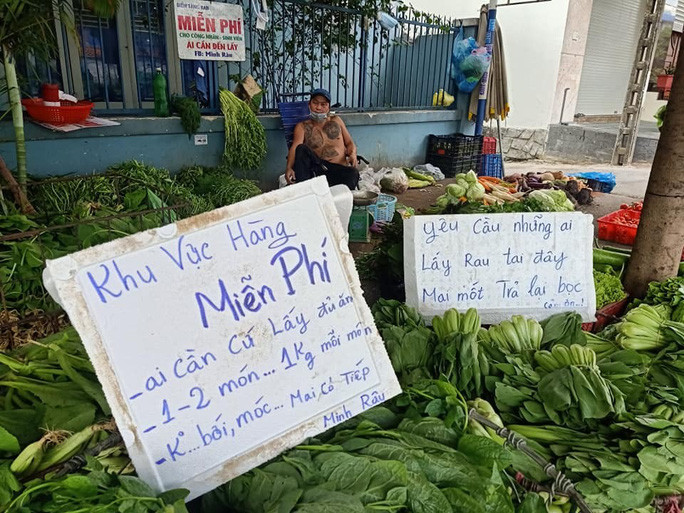 MIỄN PHÍ
CHO CÔNG NHÂN - SINH VIÊN
AI CẦN ĐẾN LẤY
FB: Minh Râu
Khu Vực Hàng
Miễn Phí
- ai Cần Cứ Lấy đủ ăn
- 1-2 món... 1Kg mỗi món
- K°... bới, móc... Mai Có Tiếp
Minh Râu
yêu Cầu những ai
Lấy Rau tại đây
Mai mốt Trả lại bọc
Cảm ơn..!